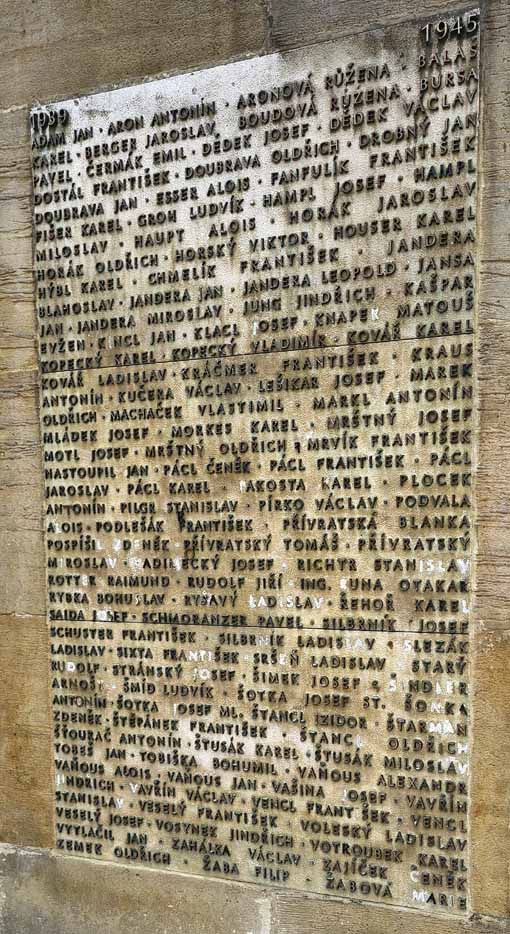 1939 1945
ADAM JAN · ARON ANTONÍN · ARONOVÁ RŮŽENA · BALAS
KAREL · BERGER JAROSLAV, BOUDOVÁ RŮŽENA · BURSA
PAVEL · ČERMÁK EMIL · DĚDEK JOSEF · DĚDEK VÁCLAV
DOSTÁL FRANTIŠEK · DOUBRAVA OLDŘICH · DROBNÝ JAN
DOUBRAVA JAN · ESSER ALOIS · FANFULÍK FRANTIŠEK
FIŠER KAREL · GROH LUDVÍK · HAMPL JOSEF · HAMPL
MILOSLAV · HAUPT ALOIS · HORÁK JAROSLAV
HORÁK OLDŘICH · HORSKÝ VIKTOR · HOUSER KAREL
HÝBL KAREL · CHMELÍK FRANTIŠEK · JANDERA
BLAHOSLAV · JANDERA JAN · JANDERA LEOPOLD · JANSA
JAN · JANDERA MIROSLAV · JUNG JINDŘICH · KAŠPAR
EVŽEN · KINCL JAN · KLACL JOSEF · KNAPEK MATOUŠ
KOPECKÝ KAREL · KOPECKÝ VLADIMÍR · KOVÁŘ KAREL
KOVÁŘ LADISLAV · KRÁČMER FRANTIŠEK · KRAUS
ANTONÍN · KUČERA VÁCLAV · LEŠIKAR JOSEF · MAREK
OLDŘICH · MACHÁČEK VLASTIMIL · MARKL ANTONÍN
MLÁDEK JOSEF · MORKES KAREL · MRŠTNÝ JOSEF
MOTL JOSEF · MRŠTNÝ OLDŘICH · MRVÍK FRANTIŠEK
NASTOUPIL JAN · PÁCL ČENĚK · PÁCL FRANTIŠEK · PÁCL
JAROSLAV · PÁCL KAREL · PAKOSTA KAREL · PLOCEK
ANTONÍN · PILGR STANISLAV · PÍRKO VÁCLAV · PODVALA
ALOIS · PODLEŠÁK FRANTIŠEK · PŘÍVRATSKÁ BLANKA
POSPÍŠIL ZDENĚK · PŘÍVRATSKÝ TOMÁŠ · PŘÍVRATSKÝ
MIROSLAV · RADIMĚCKÝ JOSEF · RICHTR STANISLAV
ROTTER RAIMUND · RUDOLF JIŘÍ · ING. RUNA OTAKAR
RYBKA BOHUSLAV · RYŠAVÝ LADISLAV · ŘEHOŘ KAREL
SAIDA JOSEF · SCHMORANZER PAVEL · SILBRNÍK JOSEF
SCHUSTER FRANTIŠEK · SILBRNÍK LADISLAV · SLEZÁK
LADISLAV · SIXTA FRANTIŠEK · SRŠEŇ LADISLAV STARÝ
RUDOLF · STRÁNSKÝ JOSEF · ŠIMEK JOSEF · ŠINDLER
ARNOŠT · ŠMÍD LUDVÍK · ŠOTKA JOSEF ST. ŠONKA
ANTONÍN · ŠOTKA JOSEF ML. ŠTANCL IZIDOR · ŠTARMAN
ZDENĚK · ŠTĚPÁNEK FRANTIŠEK · ŠTANCL OLDŘICH
ŠTOURAČ ANTONÍN · ŠTUSÁK KAREL · ŠTUSÁK MILOSLAV
TOBEŠ JAN · TOBIŠKA BOHUMIL · VAŇOUS ALEXANDR
VAŇOUS ALOIS · VAŇOUS JAN · VAŠINA JOSEF · VAVŘÍN
JINDŘICH · VAVŘÍN VÁCLAV · VENCL FRANTIŠEK · VENCL
STANISLAV · VESELÝ FRANTIŠEK VOLESKÝ LADISLAV
VESELÝ JOSEF · VOSYNEK JINDŘICH · VOTROUBEK KAREL
VYTLAČIL JAN · ZAHÁLKA VÁCLAV · ZAJÍČEK ČENĚK
ZEMEK OLDŘICH · ŽABA FILIP · ŽABOVÁ MARIE